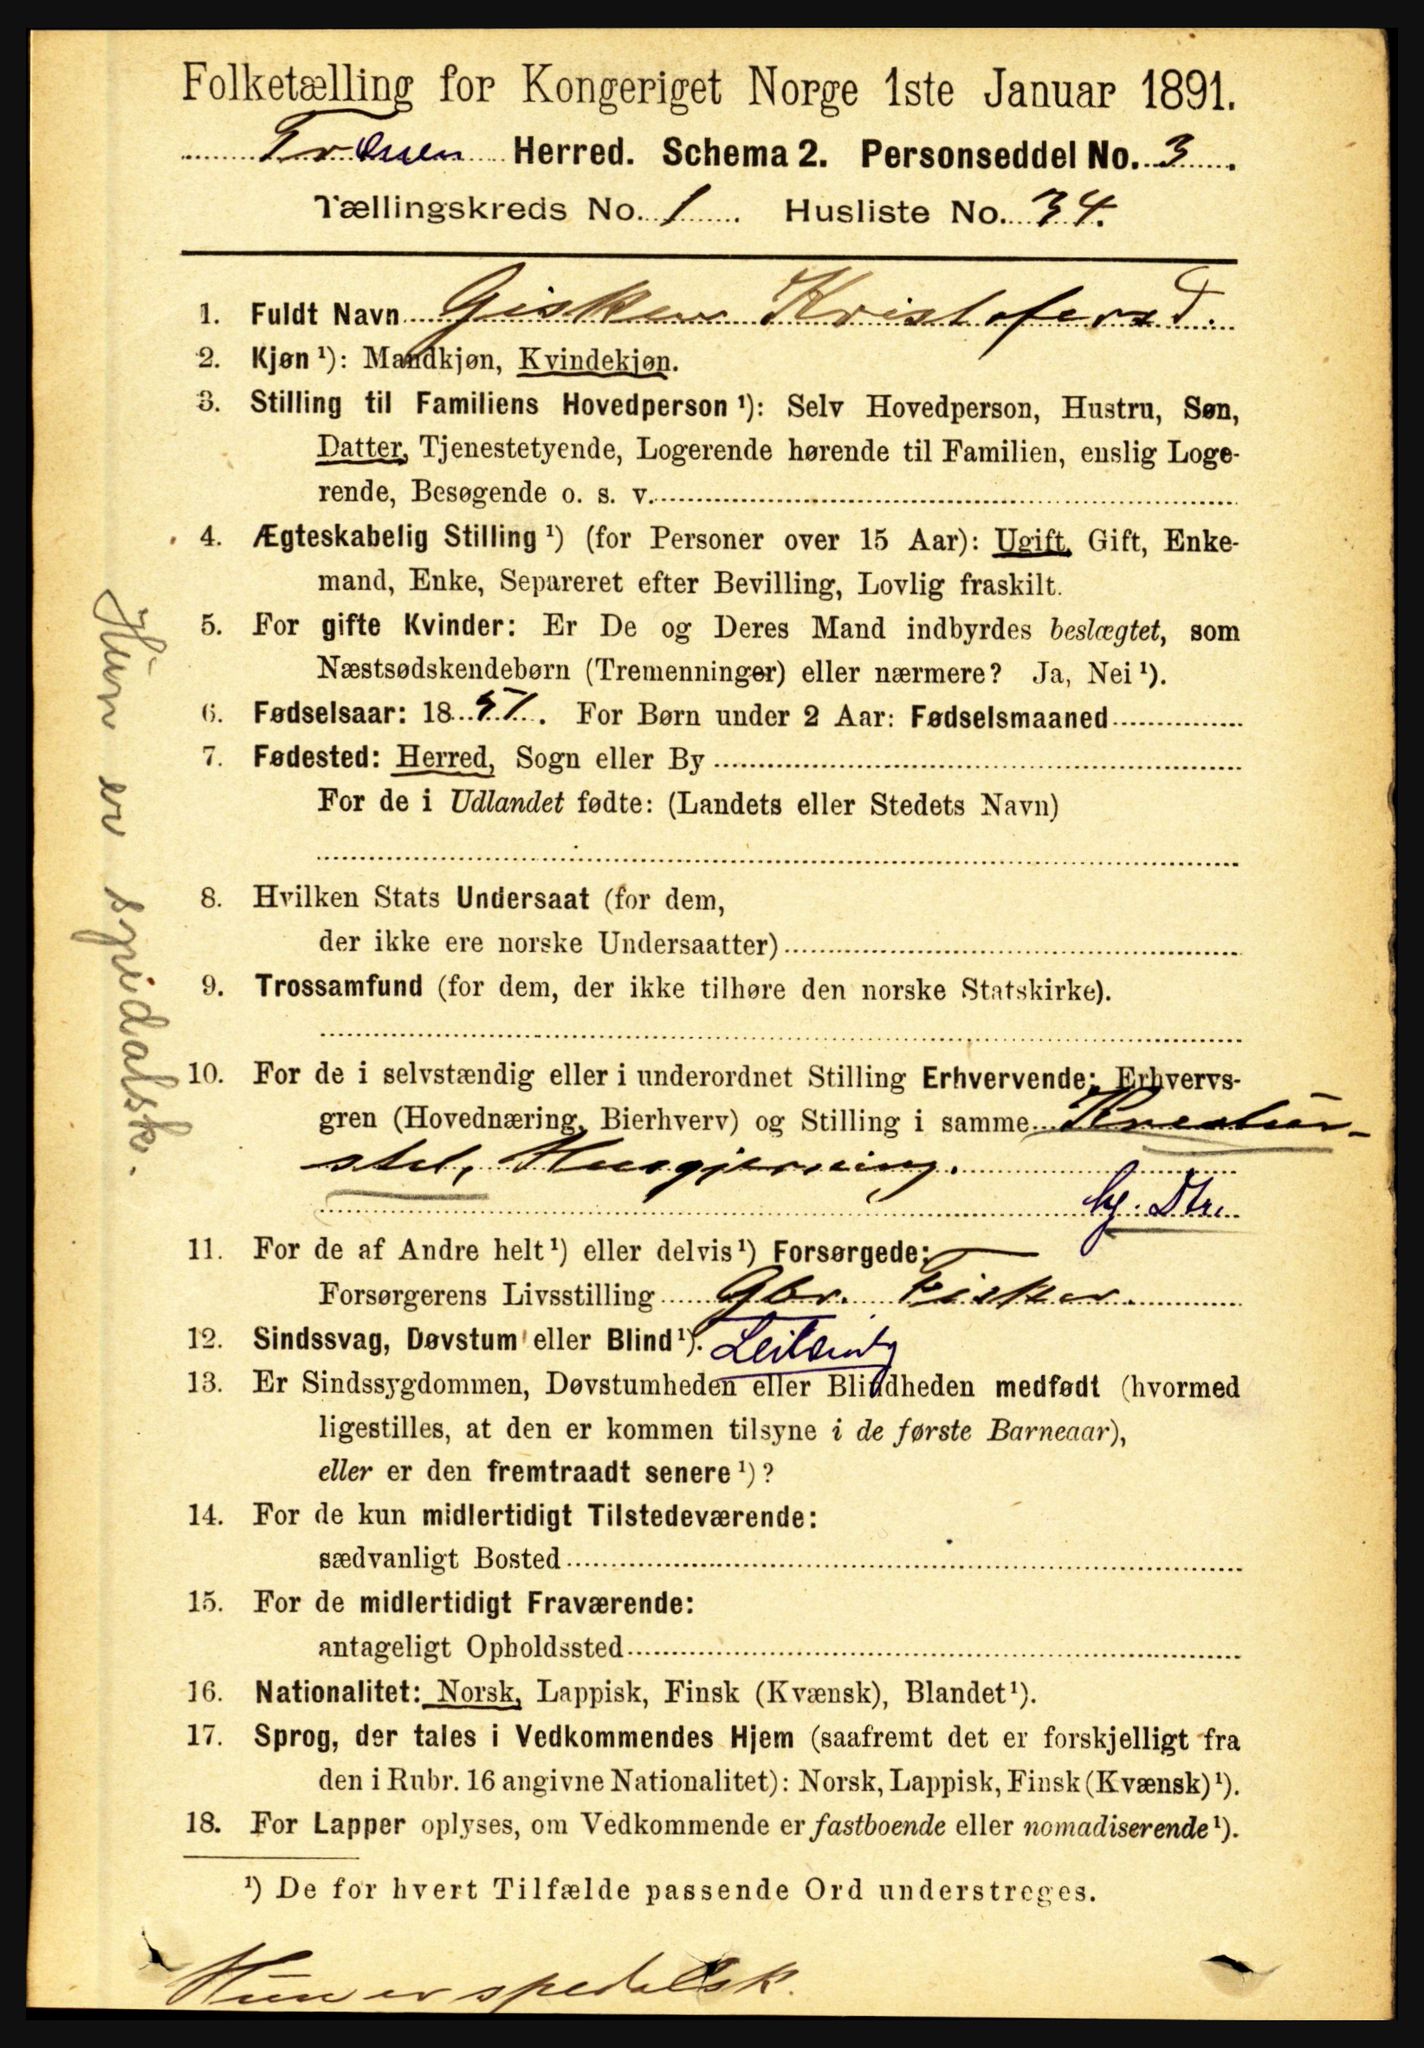 Folketælling for Kongeriget Norge 1ste Januar 1891.
Trænen Herred. Schema 2. Personseddel No. 3.
Tællingskreds No. 1. Husliste No. 34.
1. Fuldt Navn Gisken Kristofersd.
2. Kjøn ¹): Mandkjøn, Kvindekjøn.
3. Stilling til Familiens Hovedperson ¹): Selv Hovedperson, Hustru, Søn,
Datter, Tjenestetyende, Logerende hørende til Familien, enslig Loge-
rende, Besøgende o. s. v.
4. Ægteskabelig Stilling ¹) (for Personer over 15 Aar): Ugift, Gift, Enke-
mand, Enke, Separeret efter Bevilling, Lovlig fraskilt.
5. For gifte Kvinder: Er De og Deres Mand indbyrdes beslægtet, som
Næstsødskendebørn (Tremenninger) eller nærmere? Ja, Nei ¹).
6. Fødselsaar: 1857. For Børn under 2 Aar: Fødselsmaaned
7. Fødested: Herred, Sogn eller By
For de i Udlandet fødte: (Landets eller Stedets Navn)
8. Hvilken Stats Undersaat (for dem,
der ikke ere norske Undersaatter)
9. Trossamfund (for dem, der ikke tilhøre den norske Statskirke).
10. For de i selvstændig eller i underordnet Stilling Erhvervende: Erhvervs-
gren (Hovednæring, Bierhverv) og Stilling i samme Kreatur-
stel, Husgjerning.
hj. Dtr.
11. For de af Andre helt ¹) eller delvis ¹) Forsørgede:
Forsørgerens Livsstilling Gbr. Fisker.
12. Sindssvag, Døvstum eller Blind ¹).
13. Er Sindssygdommen, Døvstumheden eller Blindheden medfødt (hvormed
ligestilles, at den er kommen tilsyne i de første Barneaar),
eller er den fremtraadt senere ¹)?
14. For de kun midlertidigt Tilstedeværende:
sædvanligt Bosted
15. For de midlertidigt Fraværende:
antageligt Opholdssted
16. Nationalitet: Norsk, Lappisk, Finsk (Kvænsk), Blandet ¹).
17. Sprog, der tales i Vedkommendes Hjem (saafremt det er forskjelligt fra
den i Rubr. 16 angivne Nationalitet): Norsk, Lappisk, Finsk (Kvænsk) ¹).
18. For Lapper oplyses, om Vedkommende er fastboende eller nomadiserende ¹).
¹) De for hvert Tilfælde passende Ord understreges.
Hun er spedalsk.
Hun er spedalsk.